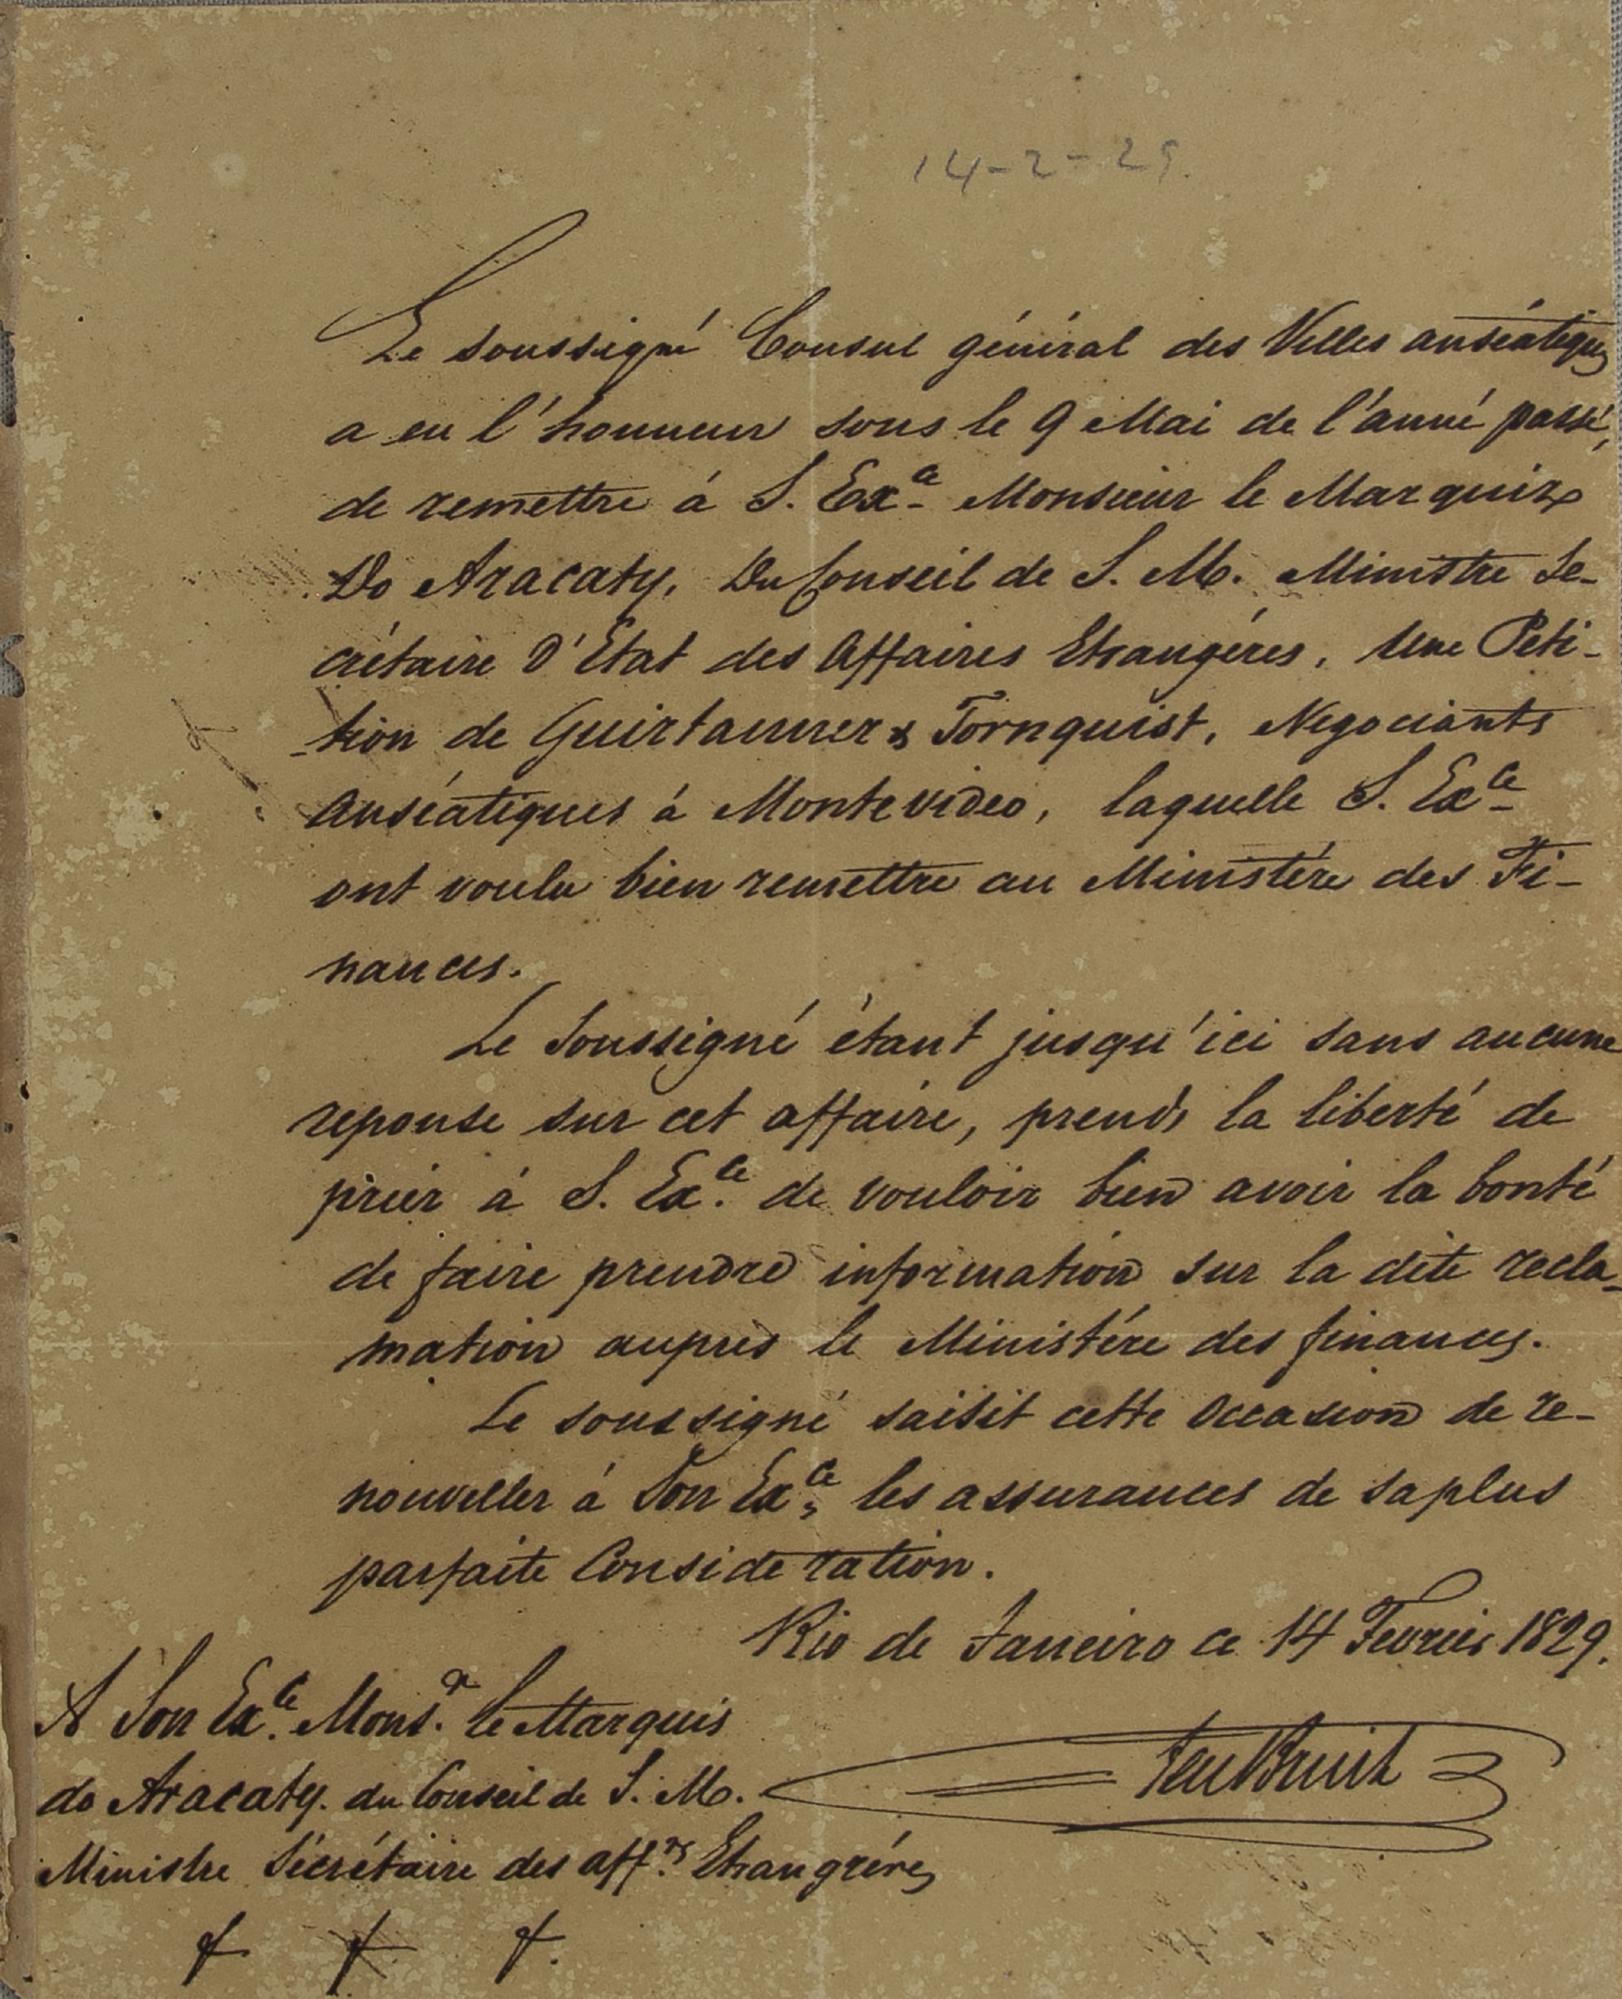 14-2-29.
Le soussigné Consul général des Villes anséatiques
a eu l'honneur sous le 9 Mai de l'anné passé,
de remettre á S. Exce Monsieur le Marquiz
Do Aracaty, Du Conseil de S. M. Ministre Se-
crétaire D'Etat des Affaires Etrangéres, Une Peti-
-tion de Guirtanner & Tornquist, Negociants
Anséatiques á Montevideo, laquelle S. Exce
ont voulu bien remettre au Ministére des Fi-
nances.
Le Soussigné étant jusqu'ici sans aucune
reponse sur cet affaire, prends la liberté de
prier á S. Exce. de vouloir bien avoir la bonté
de faire prendre information sur la dite recla-
mation aupres le Ministére des finances.
Le soussigné saisit cette Occasion de re-
nouveller á Son Exce, les assurances de sa plus
parfaite Consideration.
Rio de Janeiro ce 14 Fevrier 1829.
A Son Exce. Monsr. le Marquis
do Aracaty. du Conseil de S. M.
Ministre Sécrétaire des affrs. Etrangréres